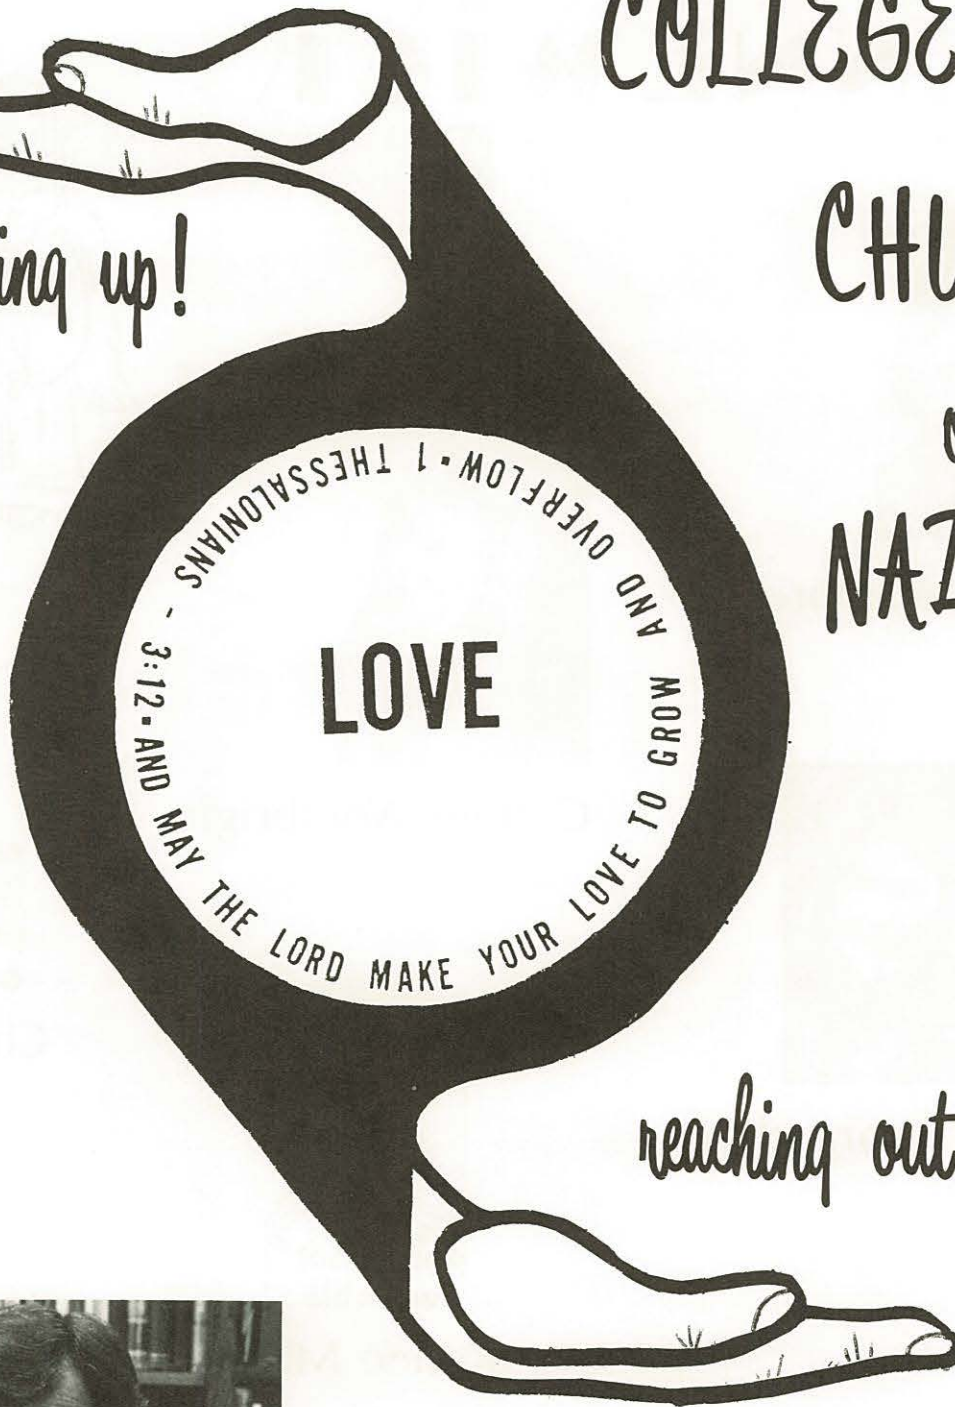 COLLEGE
ing up!
CHU
NAZ
AND MAY THE LORD MAKE YOUR LOVE TO GROW AND OVERFLOW▪1 THESSALONIANS - 3:12▪
LOVE
reaching out